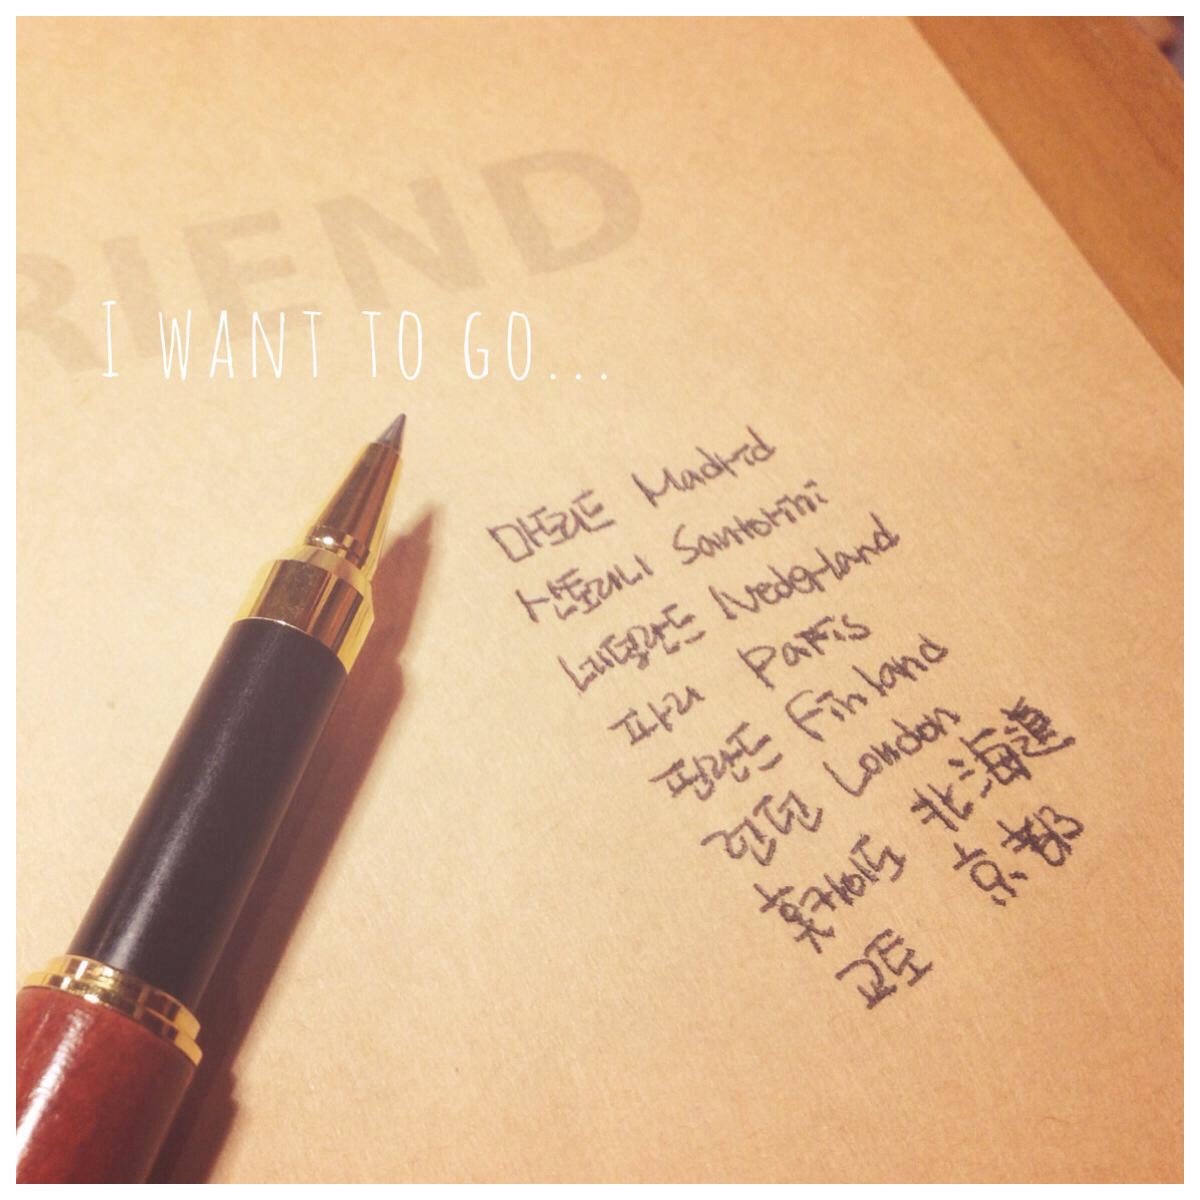 RIEND
I WANT TO GO...
마드리드 Madrid
산토리니 Santorini
네덜란드 Nederland
파리 Paris
핀란드 Finland
런던 London
홋카이도 北海道
교토 京都